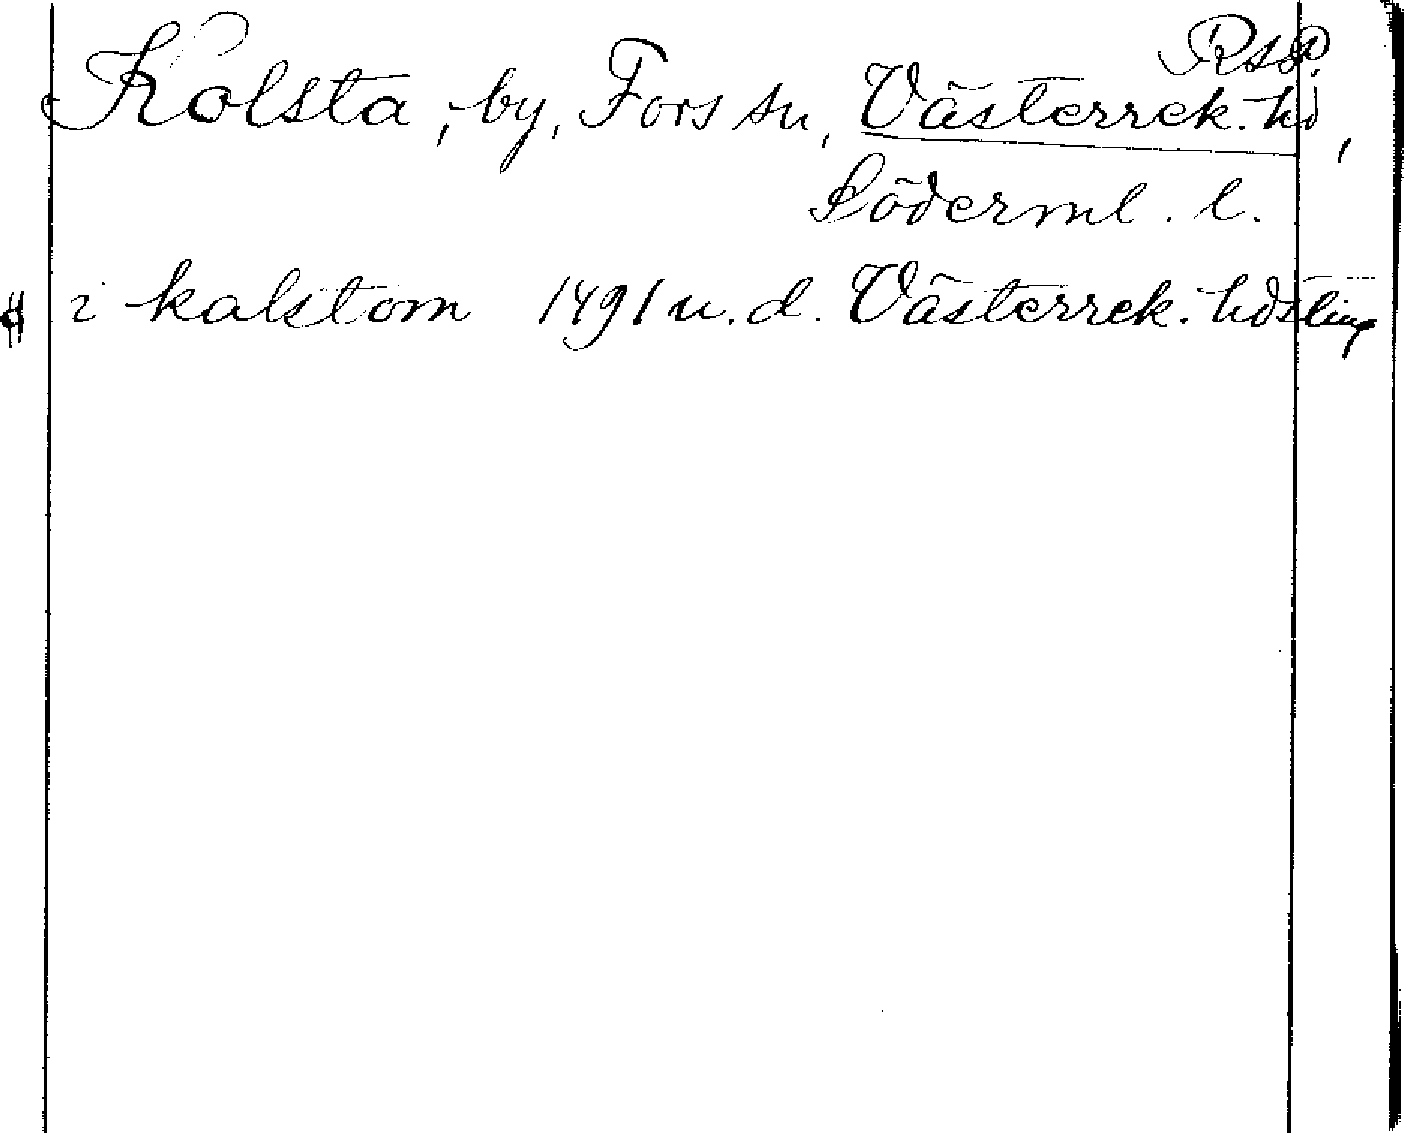 Kolsta, by, Fors sn, Västerrek. hd,
Söderml. l.
i kalstom 1491 u. d. Västerrek. hdsting